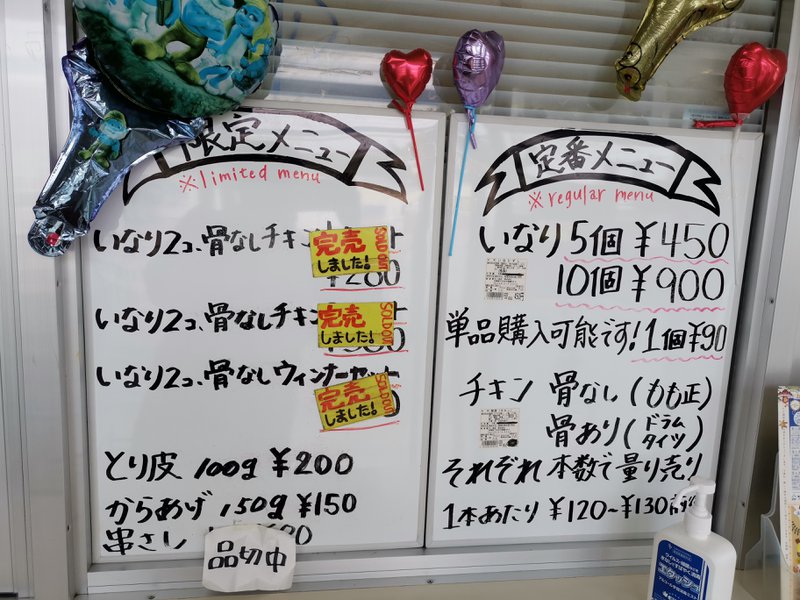 限定メニュー
※limited menu
いなり2コ、骨なしチキン
完売しました!
SOLD OUT
¥280
いなり2コ、骨なしチキン
完売しました!
SOLD OUT
いなり2コ、骨なしウィンナーセット
完売しました!
SOLD OUT
とり皮 100g ¥200
からあげ 150g ¥150
串さし
品切中
定番メニュー
※regular menu
いなり 5個 ¥450
10個 ¥900
単品購入可能です! 1個 ¥90
チキン 骨なし(もも正)
骨あり(ドラムタイツ)
それぞれ 本数で量り売り
1本あたり ¥120~¥130